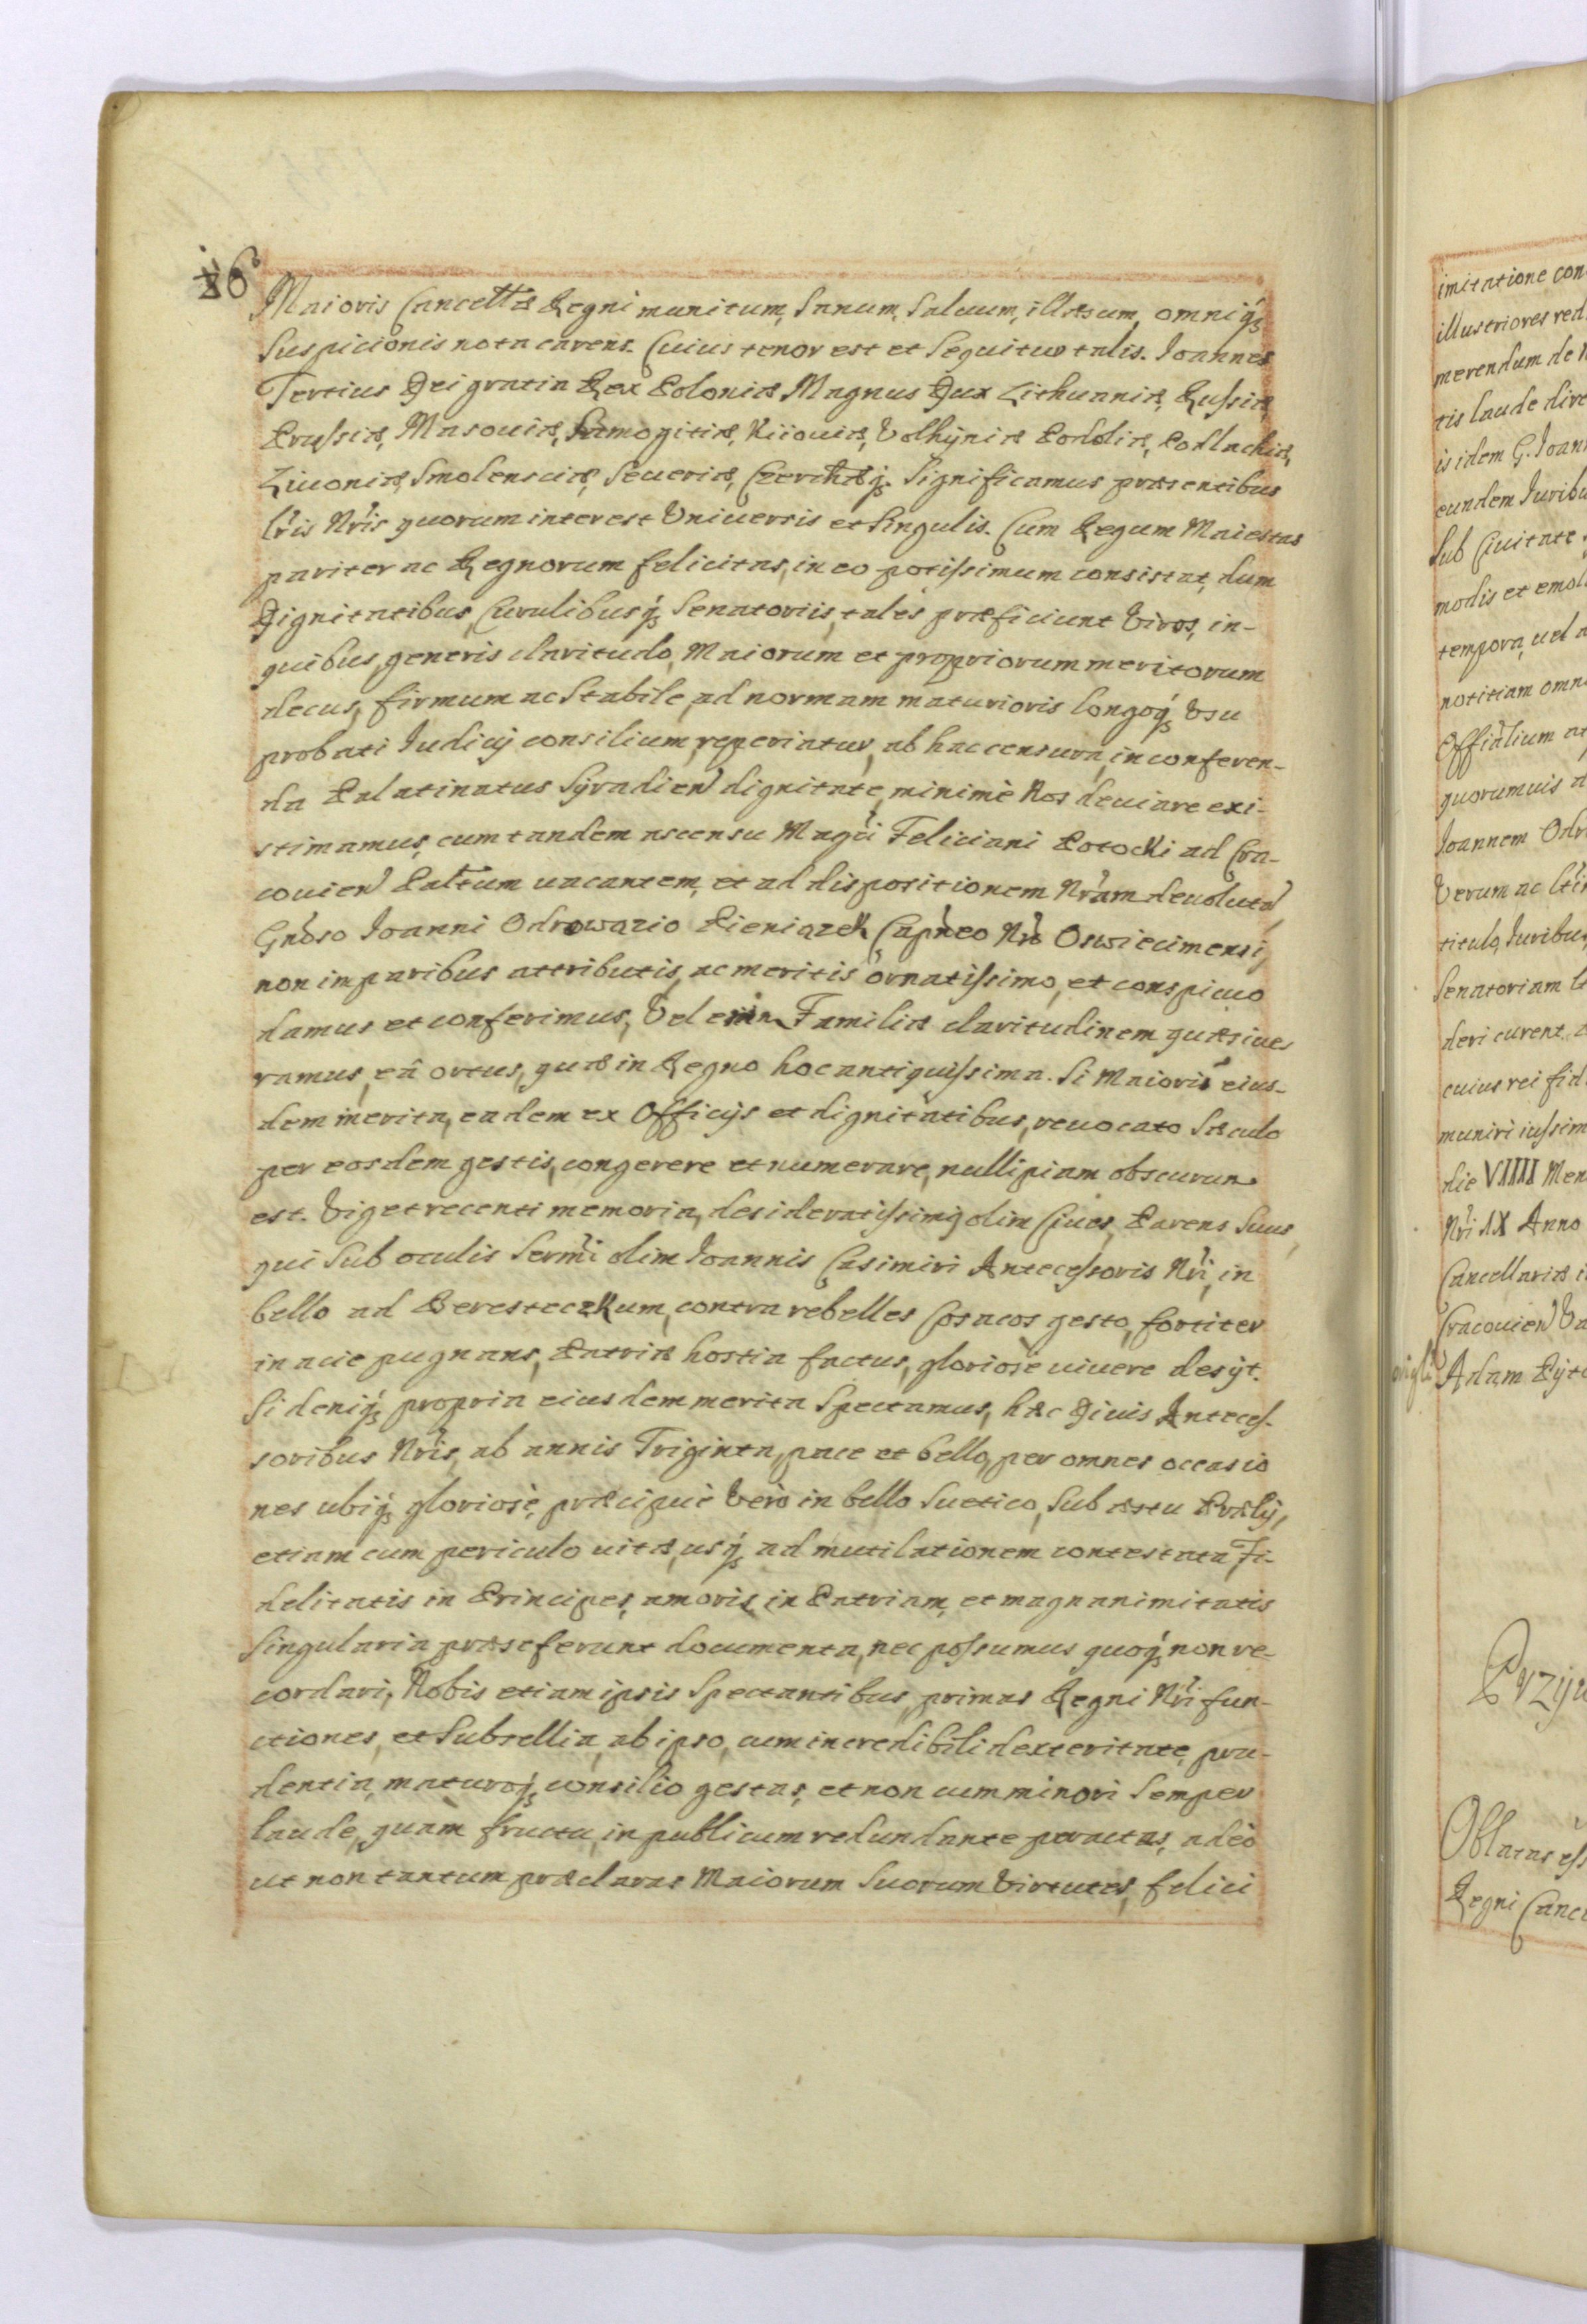 26
Maioris Cancellæ Regni munitum, Sanum, Saluum, illæsum, omniq́;
Suspicionis nota carens. Cuius tenor est et Sequitur talis. Ioannes
Tertius Dei gratia Rex Poloniæ Magnus Dux Lithuaniæ, Russiæ,
Prussiæ, Masouiæ, Samogitiæ, Kiiouiæ, Volhyniæ Podoliæ, Podlachiæ,
Liuoniæ, Smolensciæ, Seueriæ, Czerniechouiæq́. Significamus præsentibus
Lr̃is Nr̃is quorum interest Vniuersis et Singulis. Cum Regum Maiestas
pariter ac Regnorum felicitas, in eo potissimum consistat, dum
Dignitatibus, Curulibusq́; Senatoriis, tales præficiunt Viros, in-
quibus, generis claritudo, Maiorum et propriorum meritorum
decus, firmum ac Stabile, ad normam maturioris longoq́; Vsu
probati Iudicij consilium, reperiatur, ab hac censura, in conferen-
da Palatinatus Syradien̄ dignitate, minimè Nos deuiare exi-
stimamus, cum tandem ascensu Magći Feliciani Potocki ad Cra-
couien̄ Paltum uacantem, et ad dispositionem Nr̃am deuolutã,
Gnõso Ioanni Odrowązio Pieniązek Capñeo Nr̃o Oswiecimensi,
non imparibus attributis, ac meritis ornatissimo, et conspicuo
damus et conferimus, Vel enim Familiæ claritudinem quæsiue-
ramus, eâ ortus, quæ in Regno hoc antiquissima. Si Maioris eius-
dem merita, eadem ex Officijs et dignitatibus, reuocato Sæculo
per eosdem gestis, congerere et numerare, nulli piam obscurum
est. Viget recenti memoria, desideratissimi, olim Ciues, Parens Suus,
qui Sub oculis Serm̃i olim Ioannis Casimiri Antecessoris Nr̃i, in
bello ad Beresteczkum, contra rebelles Cosacos gesto, fortiter
in acie pugnans, Patriæ hostia factus, gloriose uiuere desijt.
Si deniq́; propria eiusdem merita Spectamus, hæc Diuis Anteces-
soribus Nr̃is, ab annis Triginta, pace et bello, per omnes occasio
nes ubiq́; gloriosè, præcipuè Verò in bello Suetico, Sub æstu Prælij,
etiam cum periculo uitæ, usq́; ad mutilationem contestata Fi-
delitatis in Principes, amoris in Patriam, et magnanimitatis
Singularia præseferunt documenta, nec possumus quoq́; non re-
cordari, Nobis etiam ipsis Spectantibus, primas Regni Nr̃i fun-
ctiones, et Subsellia, ab ipso, cum incredibili dexteritate, pru-
dentia, maturoq́; consilio gestas, et non cum minori Semper
laude, quam fructu, in publicum redundante peractas, adeò
ut non tantum præclaras Maiorum Suorum Virtutes, felici
imitatione con
illustriores red
merendum de
tis laude dire
is idem G. Ioan
eundem Iuribu
Sub Ciuitate
modis et emol
tempora, uel a
notitiam omn
Offialium a
quorumuis a
Ioannem Odr
Verum ac
titulo, Iuribus
Senatoriam
deri curent
cuius rei fid
muniri iussim
die VIIII Men
Nr̃i IX Anno
Cancellariæ
Cracouien̄ Va
Adam
Przyw
Oblatas
Regni Canc